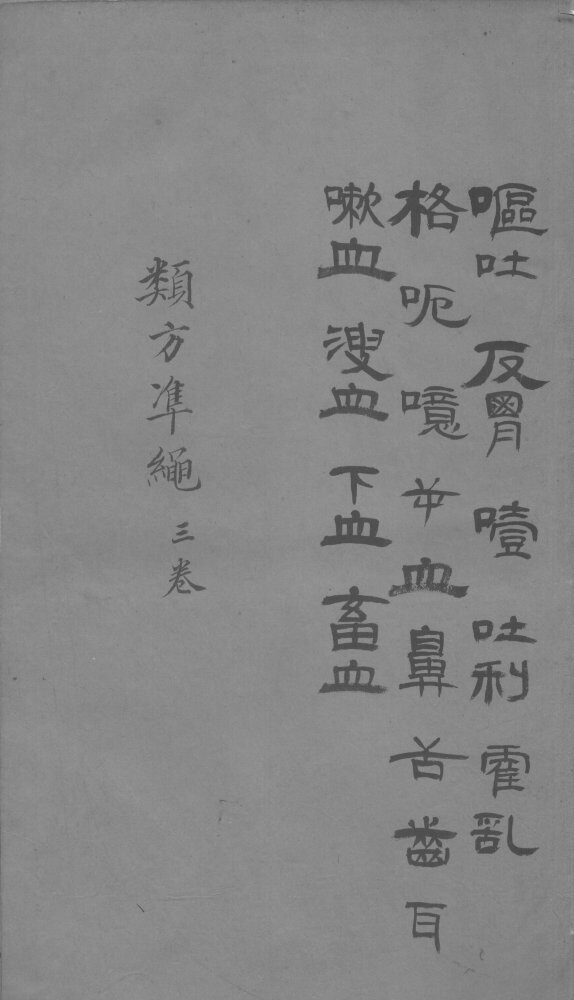 嘔吐 反胃 噎 吐利 霍乱
格 呃 噫 屰 血 鼻 舌 齒 耳
嗽血 溲血 下血 畜血
類方準繩 三卷